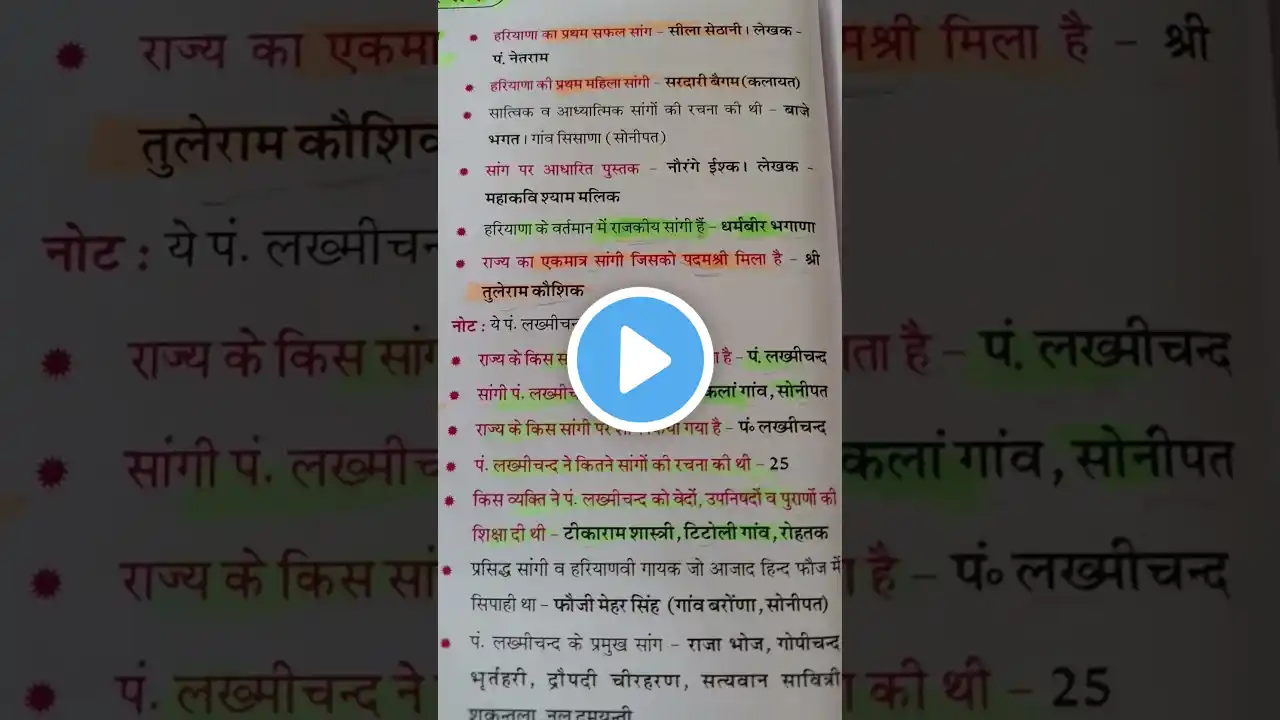 हरियाणा का प्रथम सफल सांग – सीला सेठानी। लेखक -
पं. नेतराम
हरियाणा की प्रथम महिला सांगी – सरदारी बैगम (कलायत)
सात्विक व आध्यात्मिक सांगों की रचना की थी – बाजे
भगत। गांव सिसाणा (सोनीपत)
सांग पर आधारित पुस्तक – नौरंगे ईश्क। लेखक -
महाकवि श्याम मलिक
हरियाणा के वर्तमान में राजकीय सांगी हैं – धर्मबीर भगाणा
राज्य का एकमात्र सांगी जिसको पदमश्री मिला है – श्री
तुलेराम कौशिक
नोट : ये पं. लख्मीचन्द
राज्य के किस है – पं. लख्मीचन्द
सांगी पं. कलां गांव, सोनीपत
राज्य के किस सांगी पर गया है – पं॰ लख्मीचन्द
पं. लख्मीचन्द ने कितने सांगों की रचना की थी – 25
किस व्यक्ति ने पं. लख्मीचन्द को वेदों, उपनिषदों व पुराणों की
शिक्षा दी थी – टीकाराम शास्त्री, टिटोली गांव, रोहतक
प्रसिद्ध सांगी व हरियाणवी गायक जो आजाद हिन्द फौज में
सिपाही था – फौजी मेहर सिंह (गांव बरोंणा, सोनीपत)
पं. लख्मीचन्द के प्रमुख सांग – राजा भोज, गोपीचन्द
भृर्तहरी, द्रौपदी चीरहरण, सत्यवान सावित्री
शकुन्तला, नल दमयन्ती